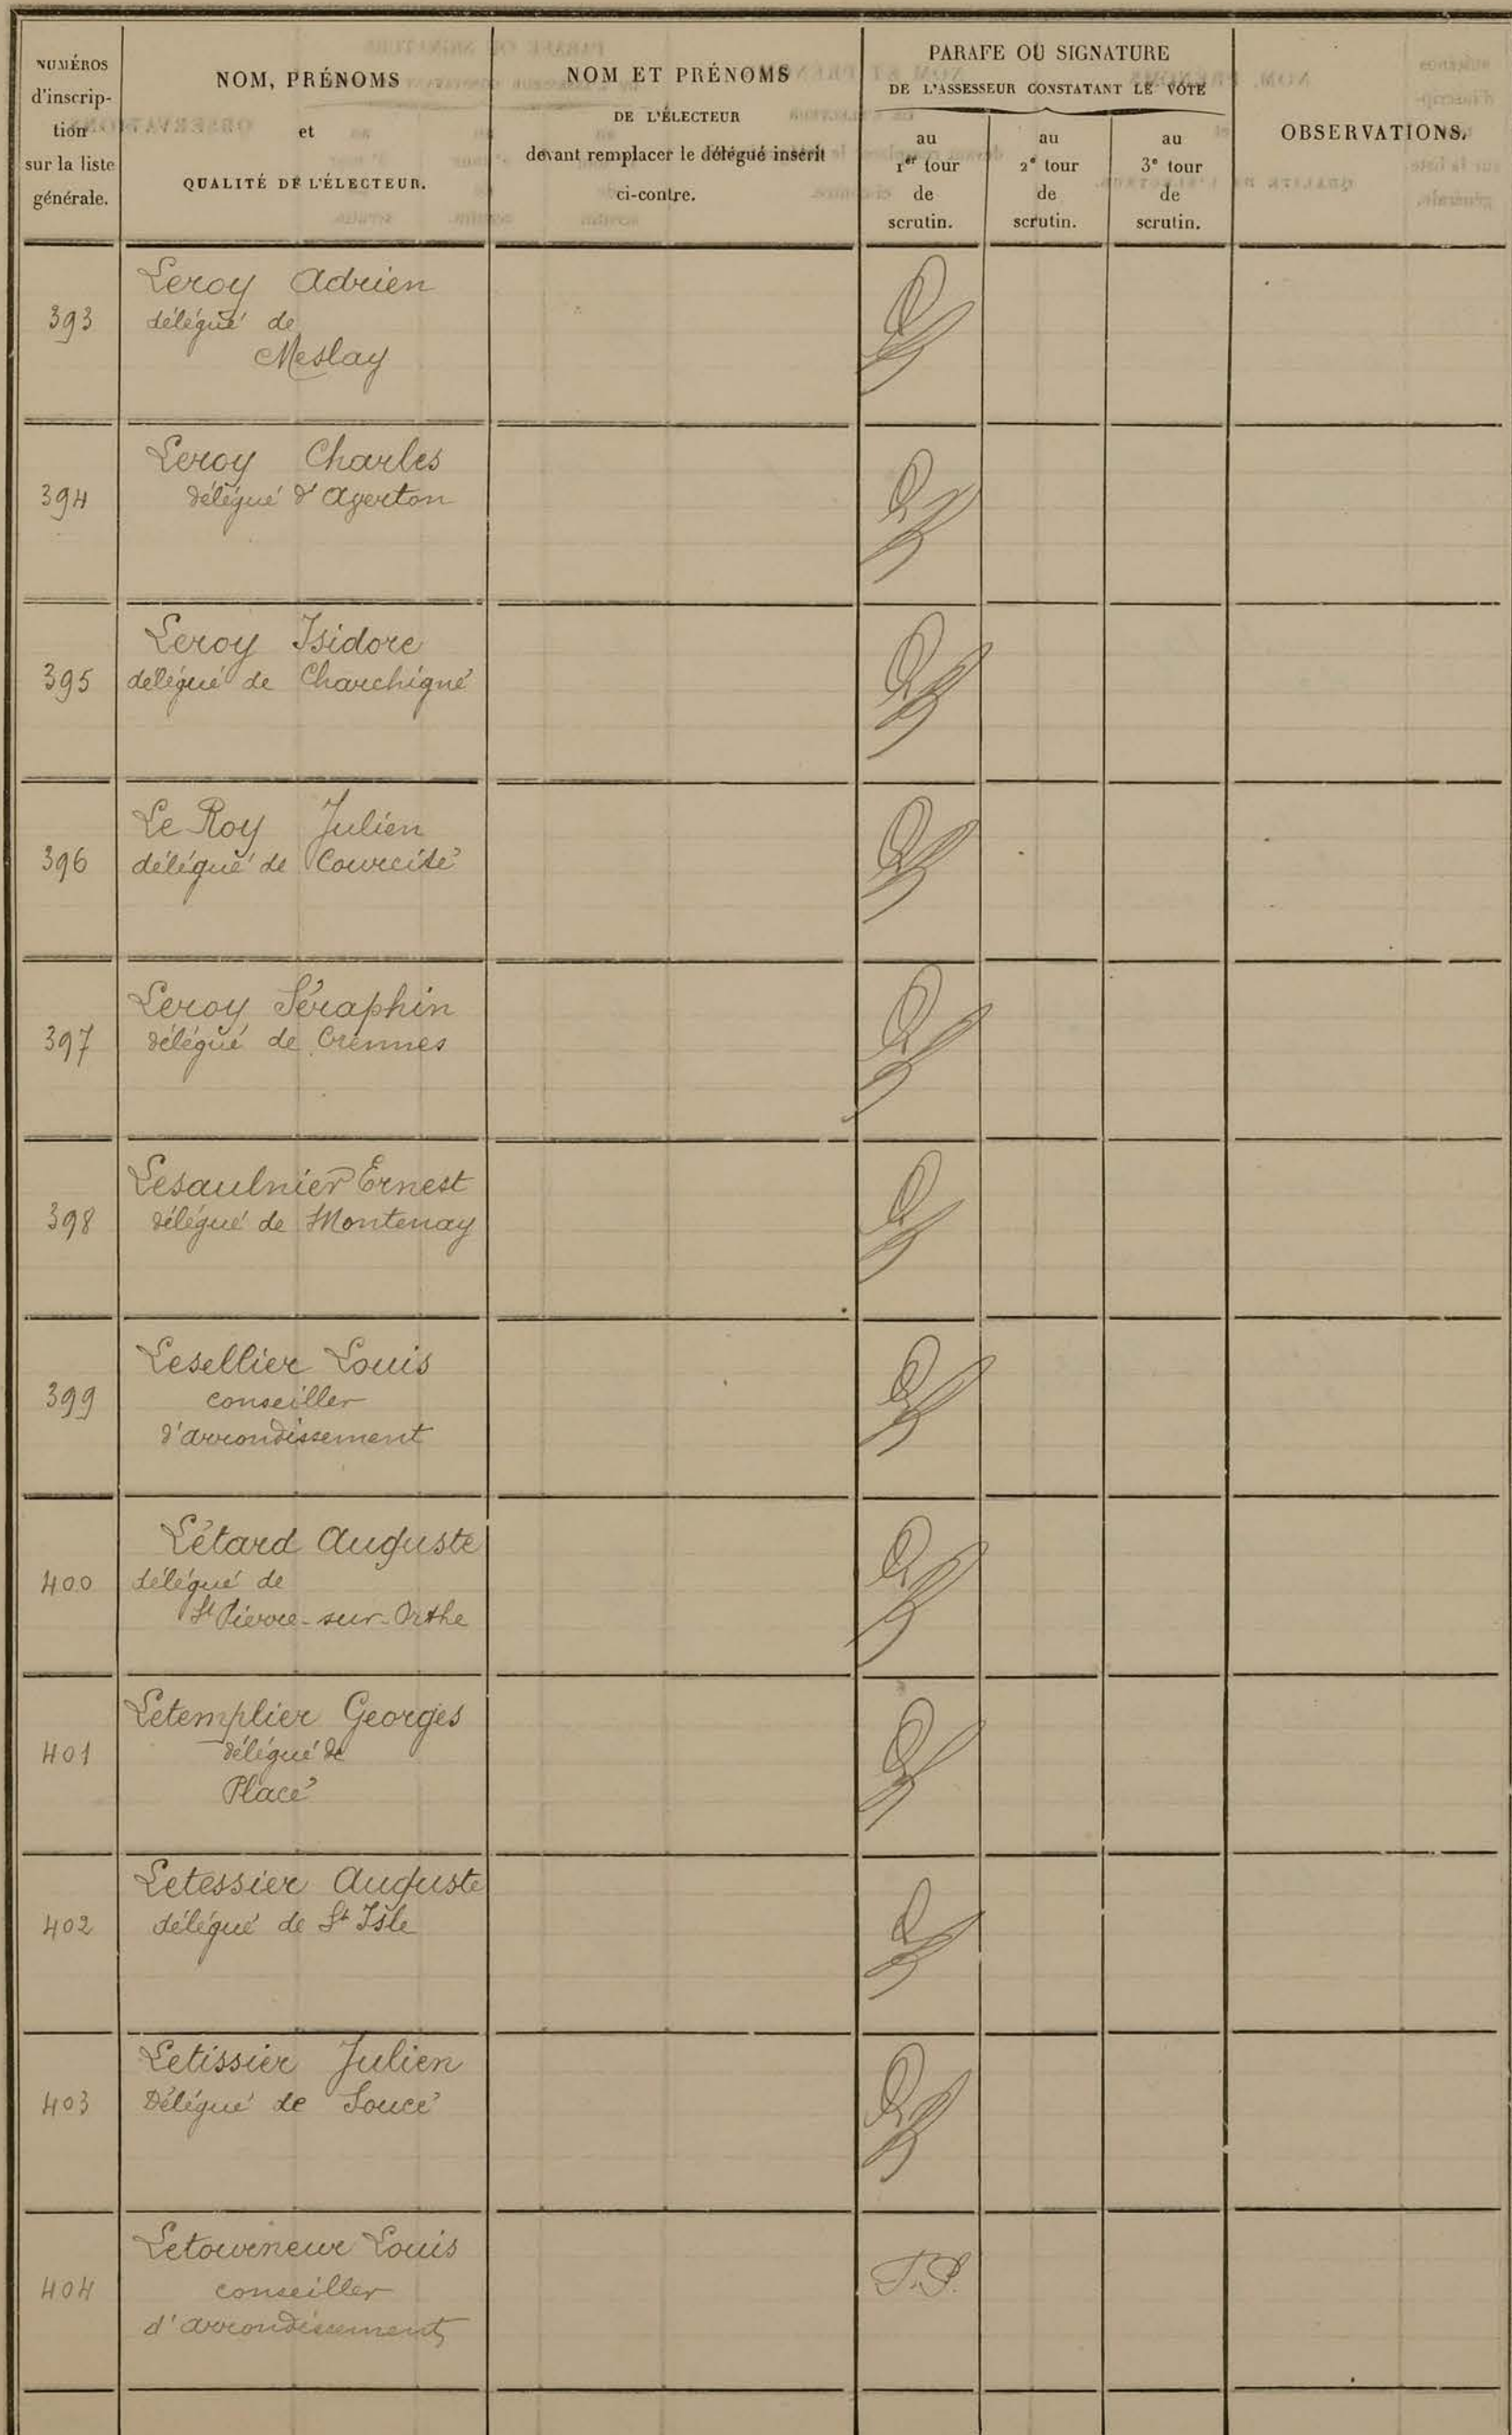 NUMÉROS
d'inscrip-
tion
sur la liste
générale.
NOM, PRÉNOMS
et
QUALITÉ DE L'ÉLECTEUR.
NOM ET PRÉNOMS
DE L'ÉLECTEUR
devant remplacer le délégué inscrit
ci-contre.
PARAFE OU SIGNATURE
DE L'ASSESSEUR CONSTATANT LE VOTE
au
1er tour
de
scrutin.
au
2e tour
de
scrutin.
au
3e tour
de
scrutin.
OBSERVATIONS.
Leroy Adrien
393 délégué de
Meslay
Leroy Charles
394 délégué d'Averton
Leroy Isidore
395 délégué de Charchigné
Le Roy Julien
396 délégué de Courcité
Leroy Séraphin
397 délégué de Crennes
Lesaulnier Ernest
398 délégué de Montenay
Lesellier Louis
399 conseiller
d'arrondissement
Létard Auguste
400 délégué de
St Pierre-sur-Orthe
Letemplier Georges
401 délégué de
Placé
Letessier Auguste
402 délégué de St Isle
Letissier Julien
403 Délégué de Soucé
Letourneur Louis
404 conseiller
d'arrondissement